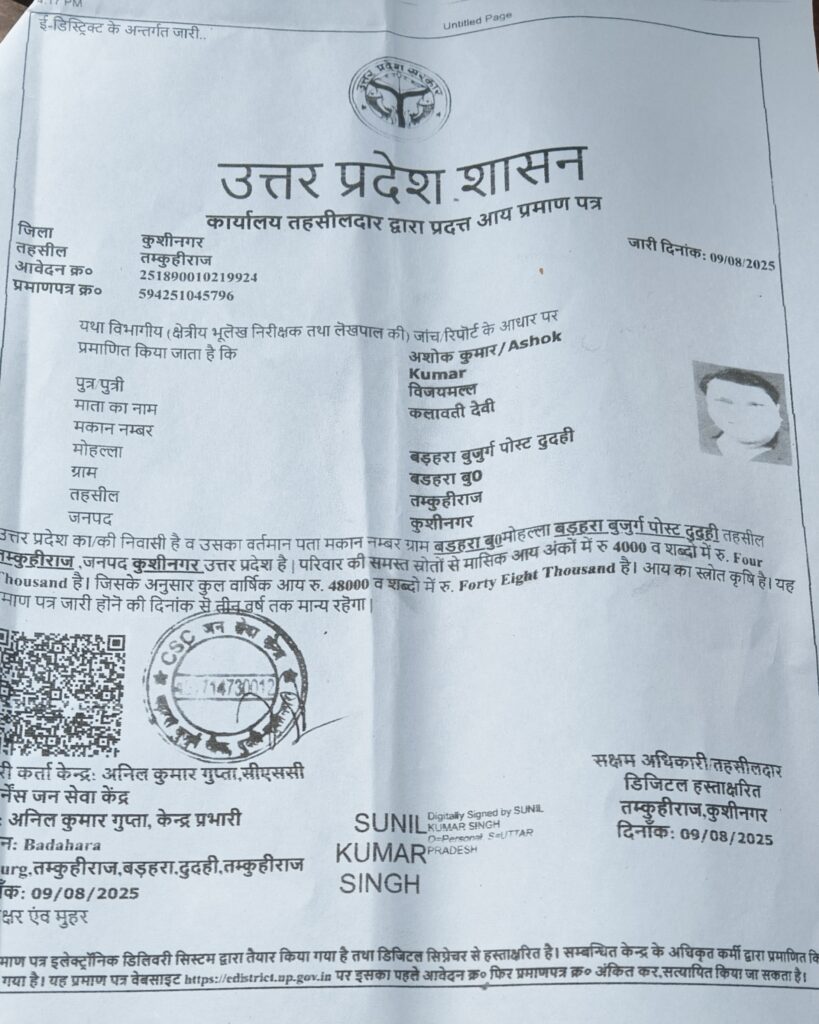 4:17 PM
Untitled Page
ई-डिस्ट्रिक्ट के अन्तर्गत जारी..
उत्तर प्रदेश सरकार
उत्तर प्रदेश शासन
कार्यालय तहसीलदार द्वारा प्रदत्त आय प्रमाण पत्र
जिला कुशीनगर
तहसील तम्कुहीराज
जारी दिनांक: 09/08/2025
आवेदन क्र० 251890010219924
प्रमाणपत्र क्र० 594251045796
यथा विभागीय (क्षेत्रीय भूलेख निरीक्षक तथा लेखपाल की) जांच/रिपोर्ट के आधार पर
प्रमाणित किया जाता है कि अशोक कुमार/Ashok
Kumar
पुत्र/पुत्री विजयमल्ल
माता का नाम कलावती देवी
मकान नम्बर
मोहल्ला बड़हरा बुजुर्ग पोस्ट दुदही
ग्राम बडहरा बु0
तहसील तम्कुहीराज
जनपद कुशीनगर
उत्तर प्रदेश का/की निवासी है व उसका वर्तमान पता मकान नम्बर ग्राम बडहरा बु0मोहल्ला बड़हरा बुजुर्ग पोस्ट दुदही तहसील
तम्कुहीराज ,जनपद कुशीनगर उत्तर प्रदेश है | परिवार की समस्त स्रोतों से मासिक आय अंकों में रु 4000 व शब्दो में रु. Four
Thousand है। जिसके अनुसार कुल वार्षिक आय रु. 48000 व शब्दो में रु. Forty Eight Thousand है। आय का स्त्रोत कृषि है। यह
माण पत्र जारी होने की दिनांक से तीन वर्ष तक मान्य रहेगा |
CSC जन सेवा केन्द्र
714730012
री कर्ता केन्द्र: अनिल कुमार गुप्ता,सीएससी
र्नेंस जन सेवा केंद्र
: अनिल कुमार गुप्ता, केन्द्र प्रभारी
न: Badahara
urg,तम्कुहीराज,बड़हरा,दुदही,तम्कुहीराज
ाँक: 09/08/2025
क्षर एंव मुहर
SUNIL
KUMAR
SINGH
Digitally Signed by SUNIL
KUMAR SINGH
D=Personal, S=UTTAR
PRADESH
सक्षम अधिकारी/तहसीलदार
डिजिटल हस्ताक्षरित
तम्कुहीराज,कुशीनगर
दिनाँक: 09/08/2025
माण पत्र इलेक्ट्रॉनिक डिलिवरी सिस्टम द्वारा तैयार किया गया है तथा डिजिटल सिग्नेचर से हस्ताक्षरित है। सम्बन्धित केन्द्र के अधिकृत कर्मी द्वारा प्रमाणित कि
गया है। यह प्रमाण पत्र वेबसाइट https://edistrict.up.gov.in पर इसका पहले आवेदन क्र० फिर प्रमाणपत्र क्र० अंकित कर,सत्यापित किया जा सकता है।